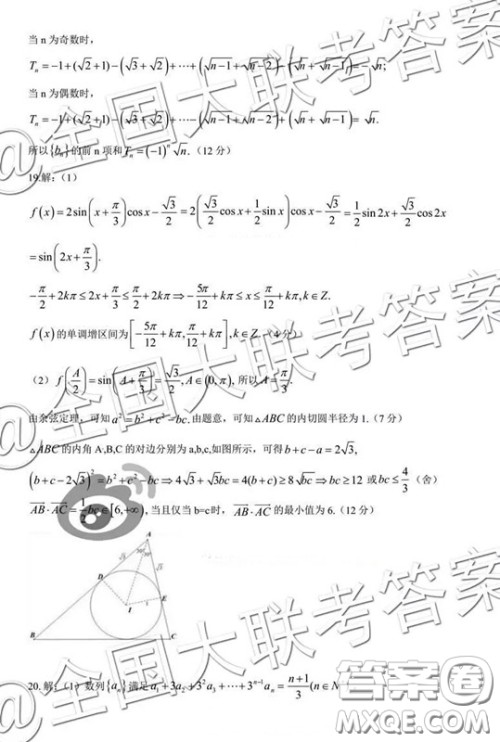 当 n 为奇数时，
Tₙ=-1+(√2+1)-(√3+√2)+⋯+(√n-1+√n-2)-(√n+√n-1)=-√n;
当 n 为偶数时，
Tₙ=-1+(√2+1)-(√3+√2)+⋯-(√n-1+√n-2)+(√n+√n-1)=√n.
所以{bₙ}的前 n 项和Tₙ=(-1)ⁿ√n.（12 分）
19.解：（1）
f(x)=2sin(x+π/3)cosx-√3/2=2(√3/2cosx+1/2sinx)cosx-√3/2=1/2sin2x+√3/2cos2x
=sin(2x+π/3).
-π/2+2kπ≤2x+π/3≤π/2+2kπ⇒-5π/12+kπ≤x≤π/12+kπ,k∈Z.
f(x)的单调增区间为[-5π/12+kπ,π/12+kπ],k∈Z.（4 分）
（2）f(A/2)=sin(A+π/3)=√3/2,A∈(0,π),所以A=π/3.
由余弦定理，可知a²=b²+c²-bc.由题意，可知△ABC的内切圆半径为 1.（7 分）
△ABC的内角 A,B,C 的对边分别为 a,b,c,如图所示，可得b+c-a=2√3,
(b+c-2√3)²=b²+c²-bc⇒4√3+√3bc=4(b+c)≥8√bc⇒bc≥12 或bc≤4/3（舍）
AB·AC=1/2bc∈[6,+∞),当且仅当 b=c时，AB·AC的最小值为 6.（12 分）
A
√3
30°
30°
√3
D
E
I
1
B
C
20.解：（1）数列{aₙ}满足a₁+3a₂+3²a₃+⋯+3ⁿ⁻¹aₙ=n+1/3(n∈N
@全国大联考答案
@全国大联考答案
@全国大联考答案
答案圈
MXQE.COM